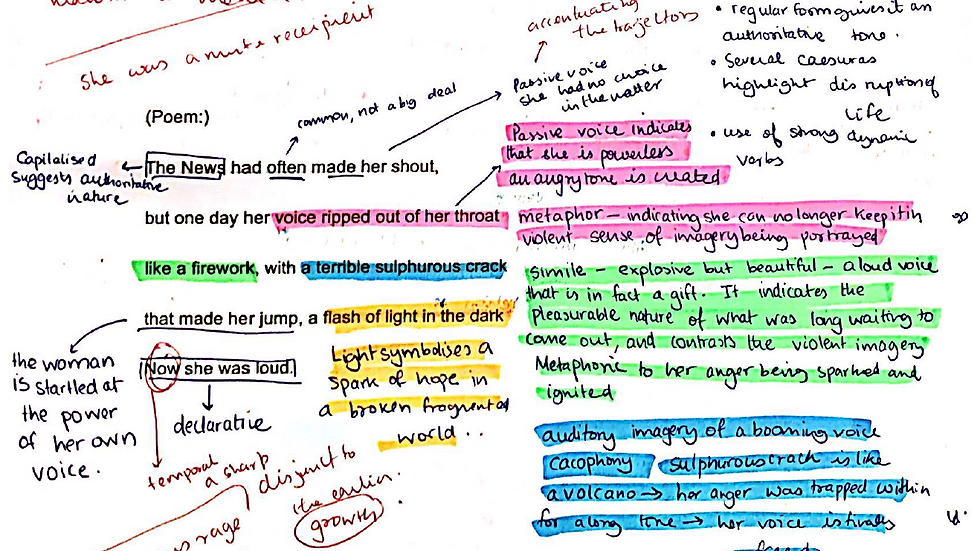 She was a mute receipient
accentuating
the trajectors
• regular form gives it an
authoritative tone.
• Several caesuras
highlight disruption of
life
• use of strong dynamic
verbs
Passive voice
she had no choice
in the matter
common, not a big deal
(Poem:)
Capitalised
suggests authoritative
nature
The News had often made her shout,
but one day her voice ripped out of her throat
like a firework, with a terrible sulphurous crack
that made her jump, a flash of light in the dark
Now she was loud.
Passive voice indicates
that she is powerless
an angry tone is created
metaphor – indicating she can no longer keep it in
violent sense of imagery being portrayed
simile – explosive but beautiful – a loud voice
that is in fact a gift. It indicates the
pleasurable nature of what was long waiting to
come out, and contrasts the violent imagery
Metaphoric to her anger being sparked and
ignited
Light symbolises a
spark of hope in
a broken fragmented
world..
the woman
is startled at
the power
of her own
voice.
declarative
temporal sharp
a disjunct to
the earlier
growth
rage
auditory imagery of a booming voice
cacophony sulphurous crack is like
a volcano → her anger was trapped within
for a long tone → her voice is finally